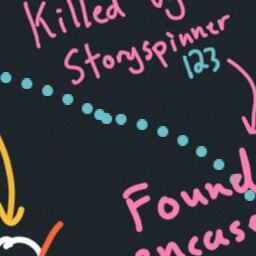 Killed by
Storyspinner
123
Found
encase